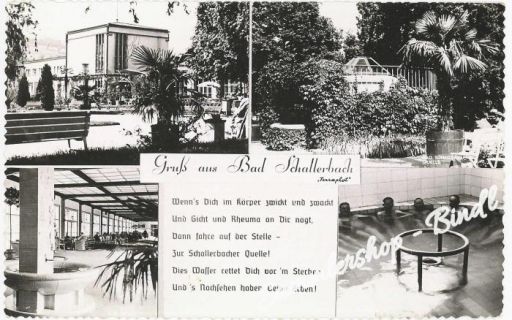 Gruß aus Bad Schallerbach
Wenn's Dich im Körper zwickt und zwackt
Und Gicht und Rheuma an Dir nagt,
Dann fahre auf der Stelle –
Zur Schallerbacher Quelle!
Dies Wasser rettet Dich vor 'm
Und 's Nachsehen haben
Bindl